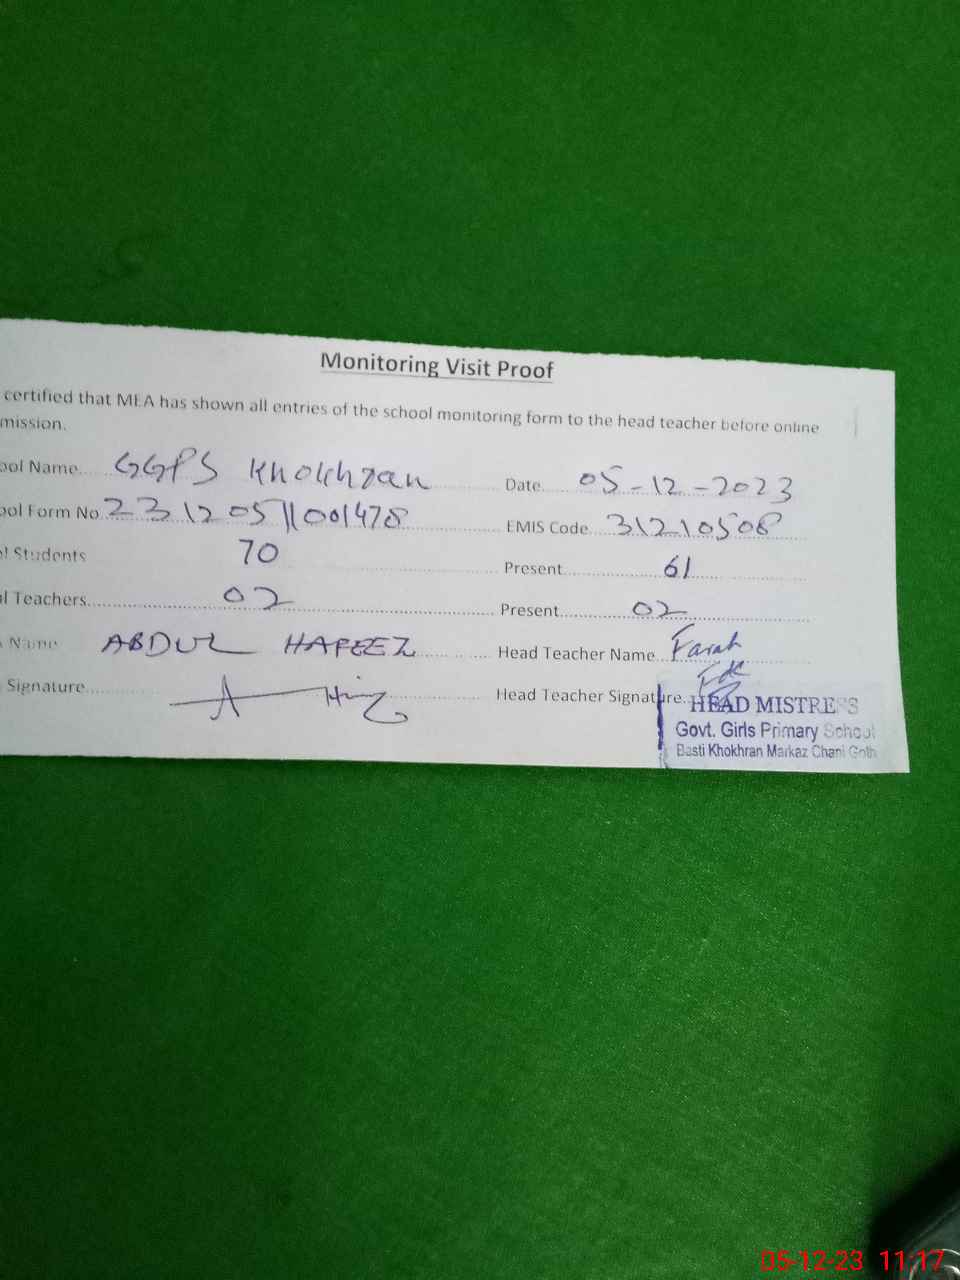 Monitoring Visit Proof
certified that MEA has shown all entries of the school monitoring form to the head teacher before online
mission.
ool Name GGPS Khokhran Date 05-12-2023
ool Form No 23120511001478 EMIS Code 31210508
l Students 70 Present 61
l Teachers 02 Present 02
Name ABDUL HAFEEZ Head Teacher Name Farah
Signature Head Teacher Signature
HEAD MISTRESS
Govt. Girls Primary School
Basti Khokhran Markaz Chani Goth
05-12-23 11:17